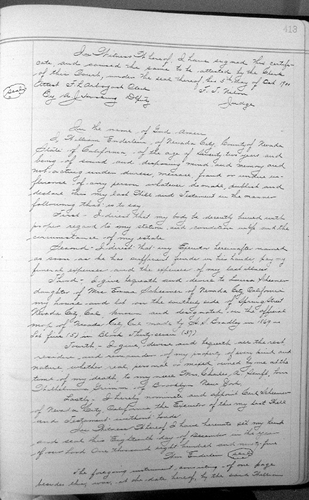 413
In Witness Whereof, I have signed this certifi-
cate and caused the same to be attested by the Clerk
of this Court, under the seal thereof, this day of Oct
Attest F. L. Arbogast Clerk
Seal By Dpty Judge
In the name of God Amen
I, William Enderlin, of Nevada City, County of Nevada
State of California, of the age of years and
being of sound and disposing mind and memory and
not acting under duress, menace, fraud or undue in-
fluence of any person whatever do make, publish and
declare this my last Will and Testament in the manner
following that is to say
First – I direct that my body be decently buried with
proper regard to my station and condition in life and the
circumstances of my estate.
Second – I direct that my Executor hereinafter named
as soon as he has sufficient funds in his hands pay my
funeral expenses and the expenses of my last illness.
Third – I give bequeath and devise to
daughter of Mrs. Emma of Nevada City California
my house and lot on the side of Spring Street
Nevada City Cal. known and designated on the official
map of Nevada City Cal. made by H. S. Bradley in 1869 as
Lot five (5) in Block Thirty seven (37).
Fourth – I give, devise and bequeath all the rest,
residue and remainder of my property of every kind and
nature whether real, personal or mixed owned by me at the
time of my death to my
of Brooklyn New York.
Lastly – I hereby nominate and appoint
of Nevada City California the Executor of this my last Will
and Testament without bonds.
In Witness Whereof I have hereunto set my hand
and seal this Eighteenth day of December in the year
of our Lord One thousand eight hundred and ninety five
Wm Enderlin Seal
The foregoing instrument, consisting of one page
besides this one, was at the date hereof, by the said William